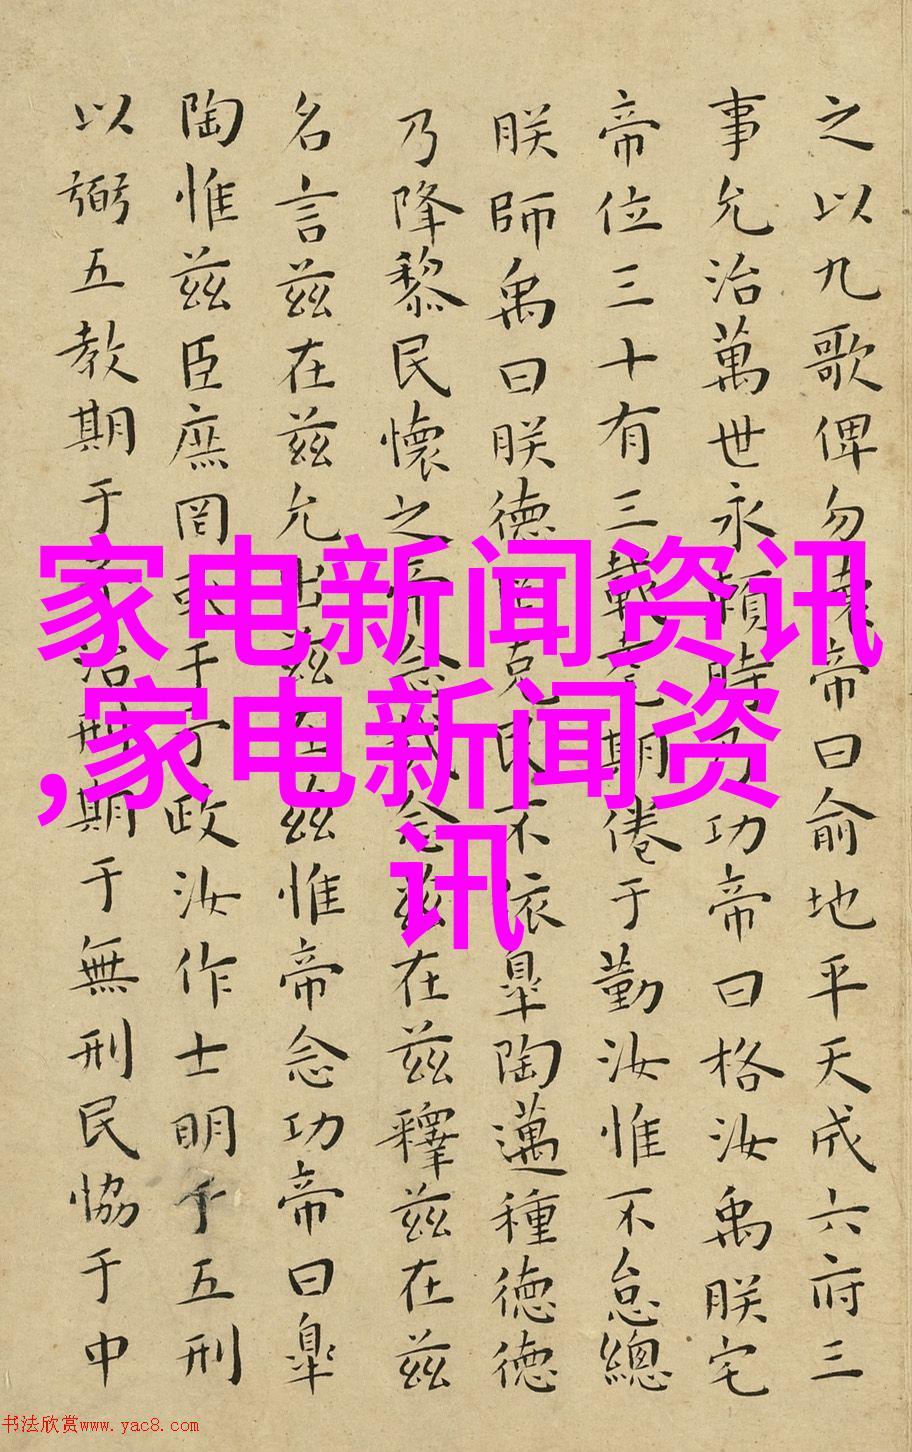 之以九歌俾勿壞帝曰俞地平天成六府三
事允治萬世永賴時乃功帝曰格汝禹朕宅
帝位三十有三載耄期倦于勤汝惟不怠總
朕師禹曰朕徳罔克民不依臯陶邁種徳徳
乃降黎民懷之帝念哉念兹在兹釋兹在兹
名言兹在兹允出兹在兹惟帝念功帝曰臯
陶惟兹臣庶罔或干予政汝作士明于五刑
以弼五教期于予治刑期于無刑民恊于中
家电新闻资讯
,家电新闻资
讯
书法欣赏www.yac8.com